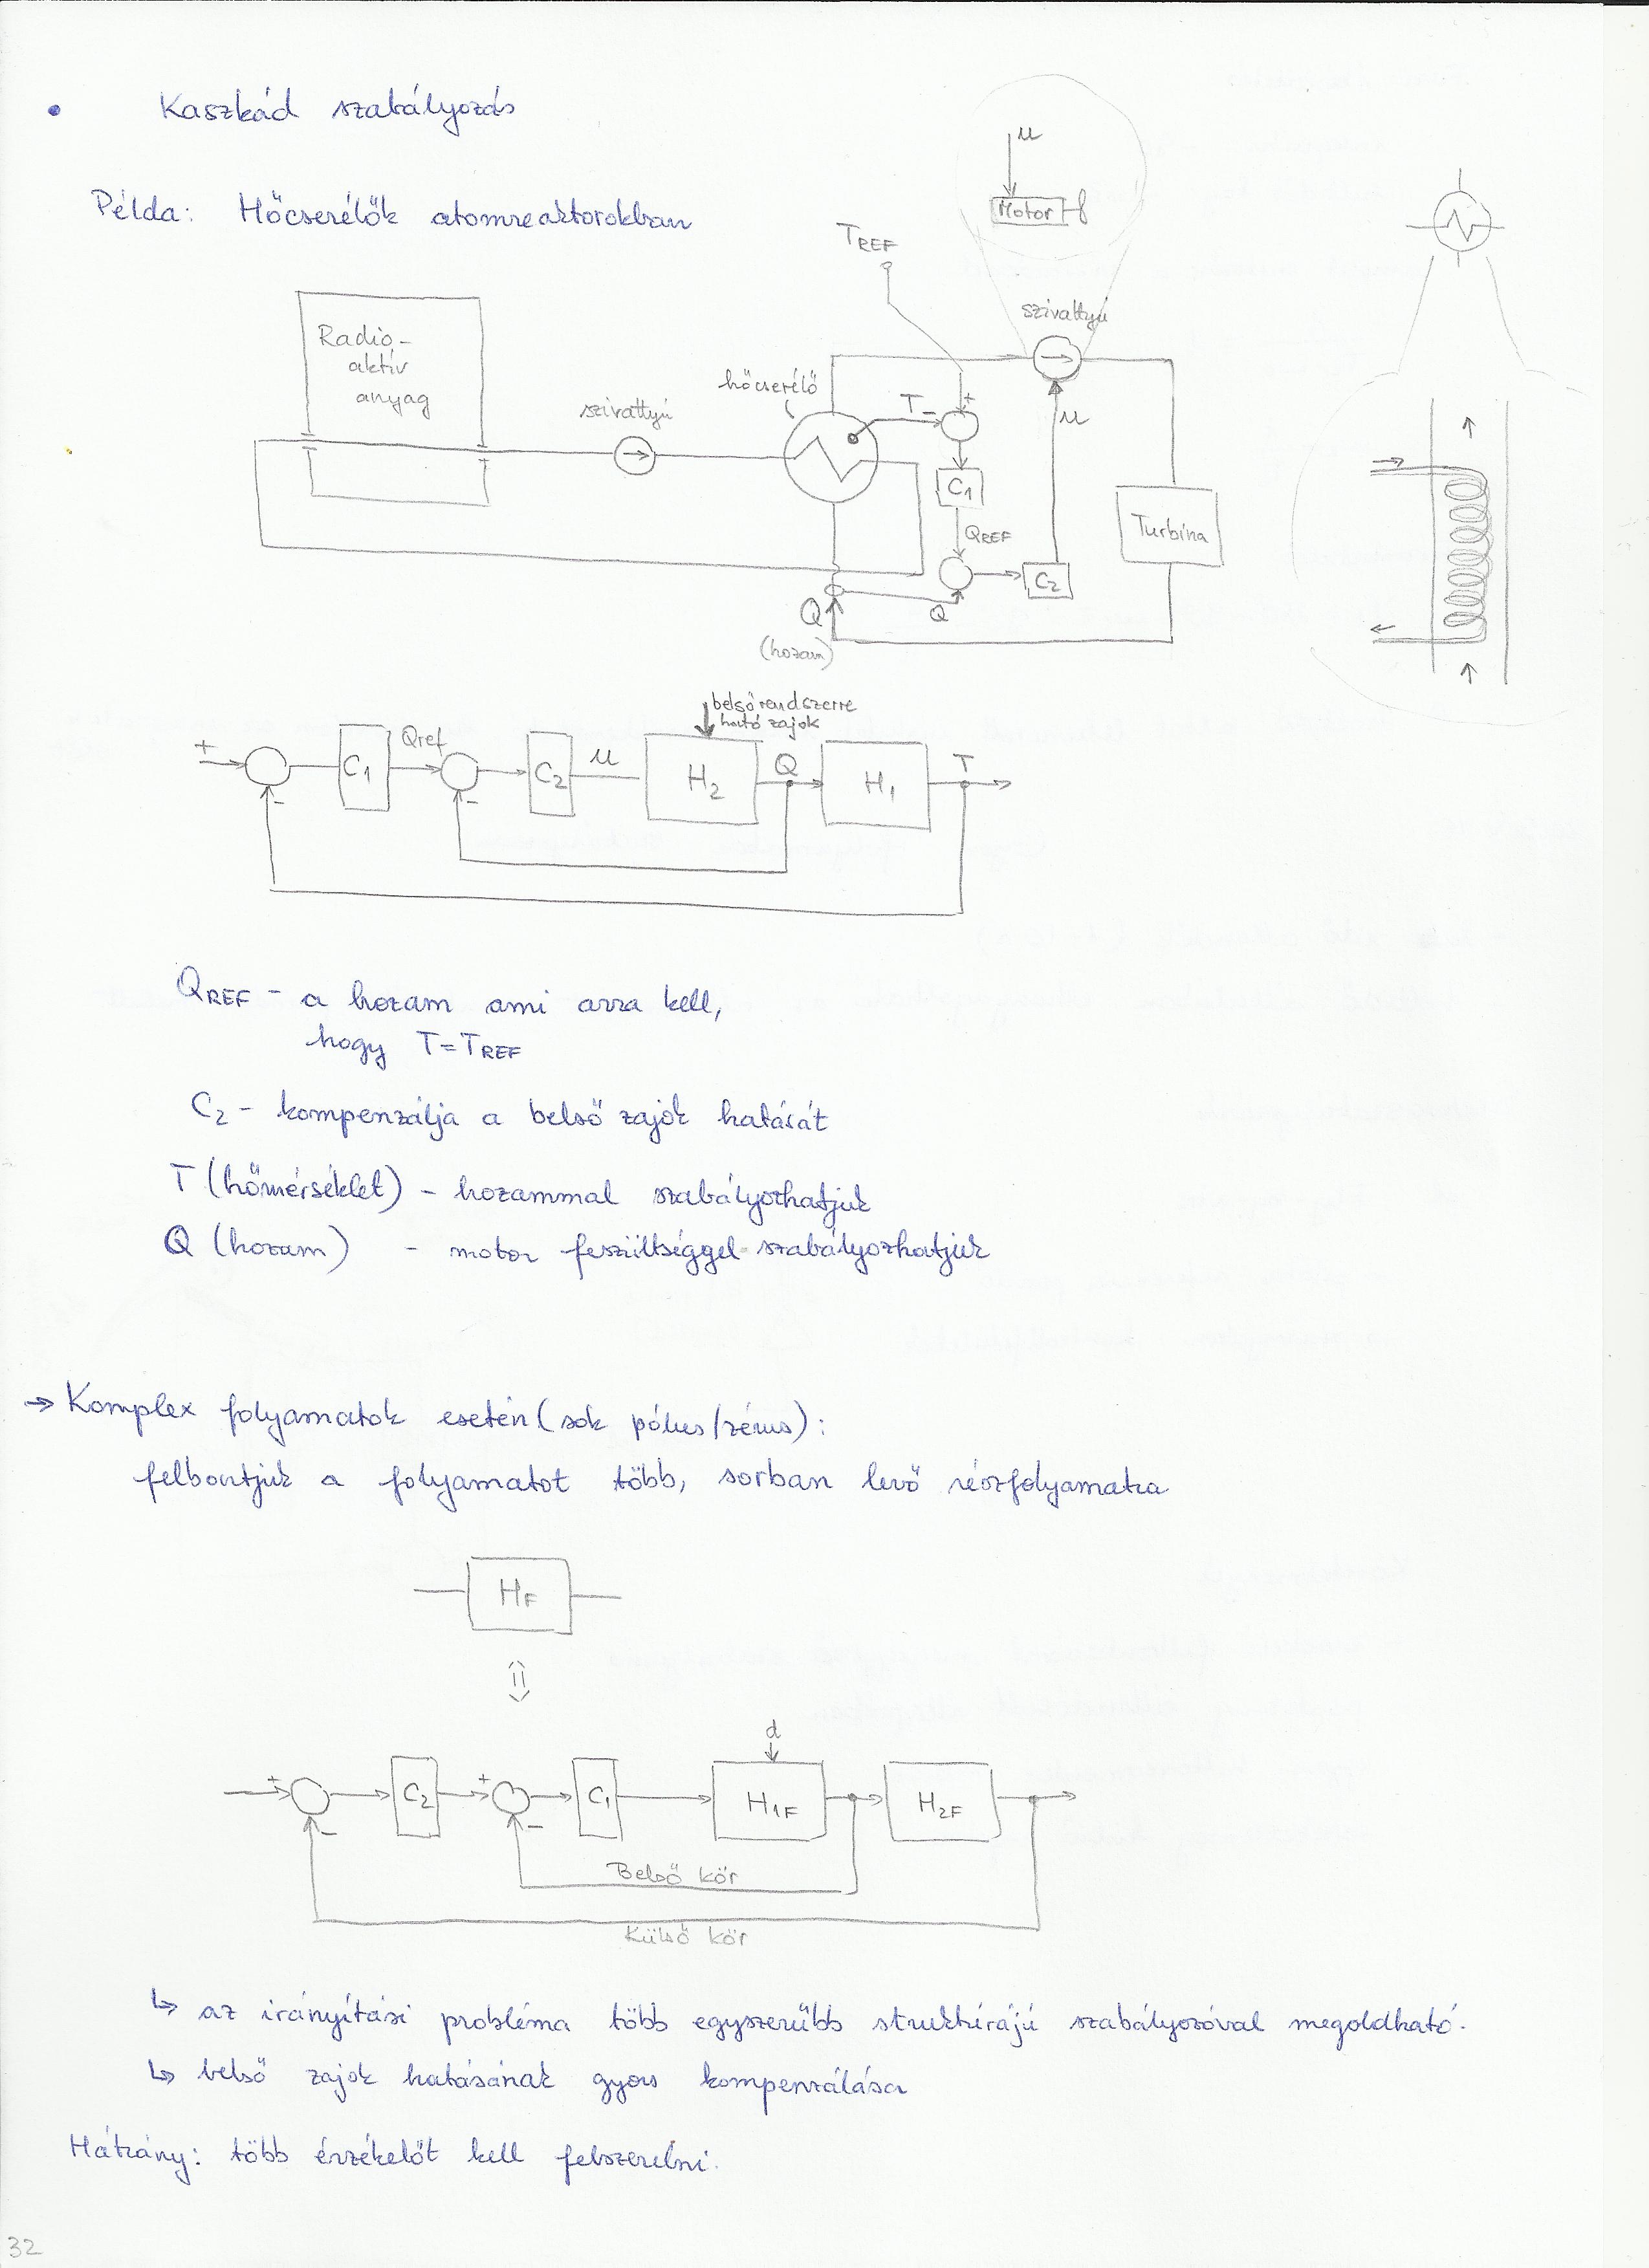 • Kaszkád szabályozás
Példa: Hőcserélők atomreaktorokban
u
Motor
TREF
szivattyú
Radio-
aktív
anyag
szivattyú
hőcserélő
T -
+
u
C1
QREF
Turbina
C2
Q
Q
(hozam)
belső rendszerre
ható zajok
+
C1
Qref
C2
u
H2
Q
H1
T
-
-
QREF - a hozam ami arra kell,
hogy T=TREF
C2 - kompenzálja a belső zajok hatását
T (hőmérséklet) - hozammal szabályozhatjuk
Q (hozam) - motor feszültséggel szabályozhatjuk
→ Komplex folyamatok esetén (sok pólus/zérus):
felbontjuk a folyamatot több, sorban levő részfolyamatra
HF
d
+
C2
+
C1
H1F
H2F
-
-
Belső kör
Külső kör
↳ az irányítási probléma több egyszerűbb struktúrájú szabályozóval megoldható.
↳ belső zajok hatásának gyors kompenzálása
Hátrány: több érzékelőt kell felszerelni.
32